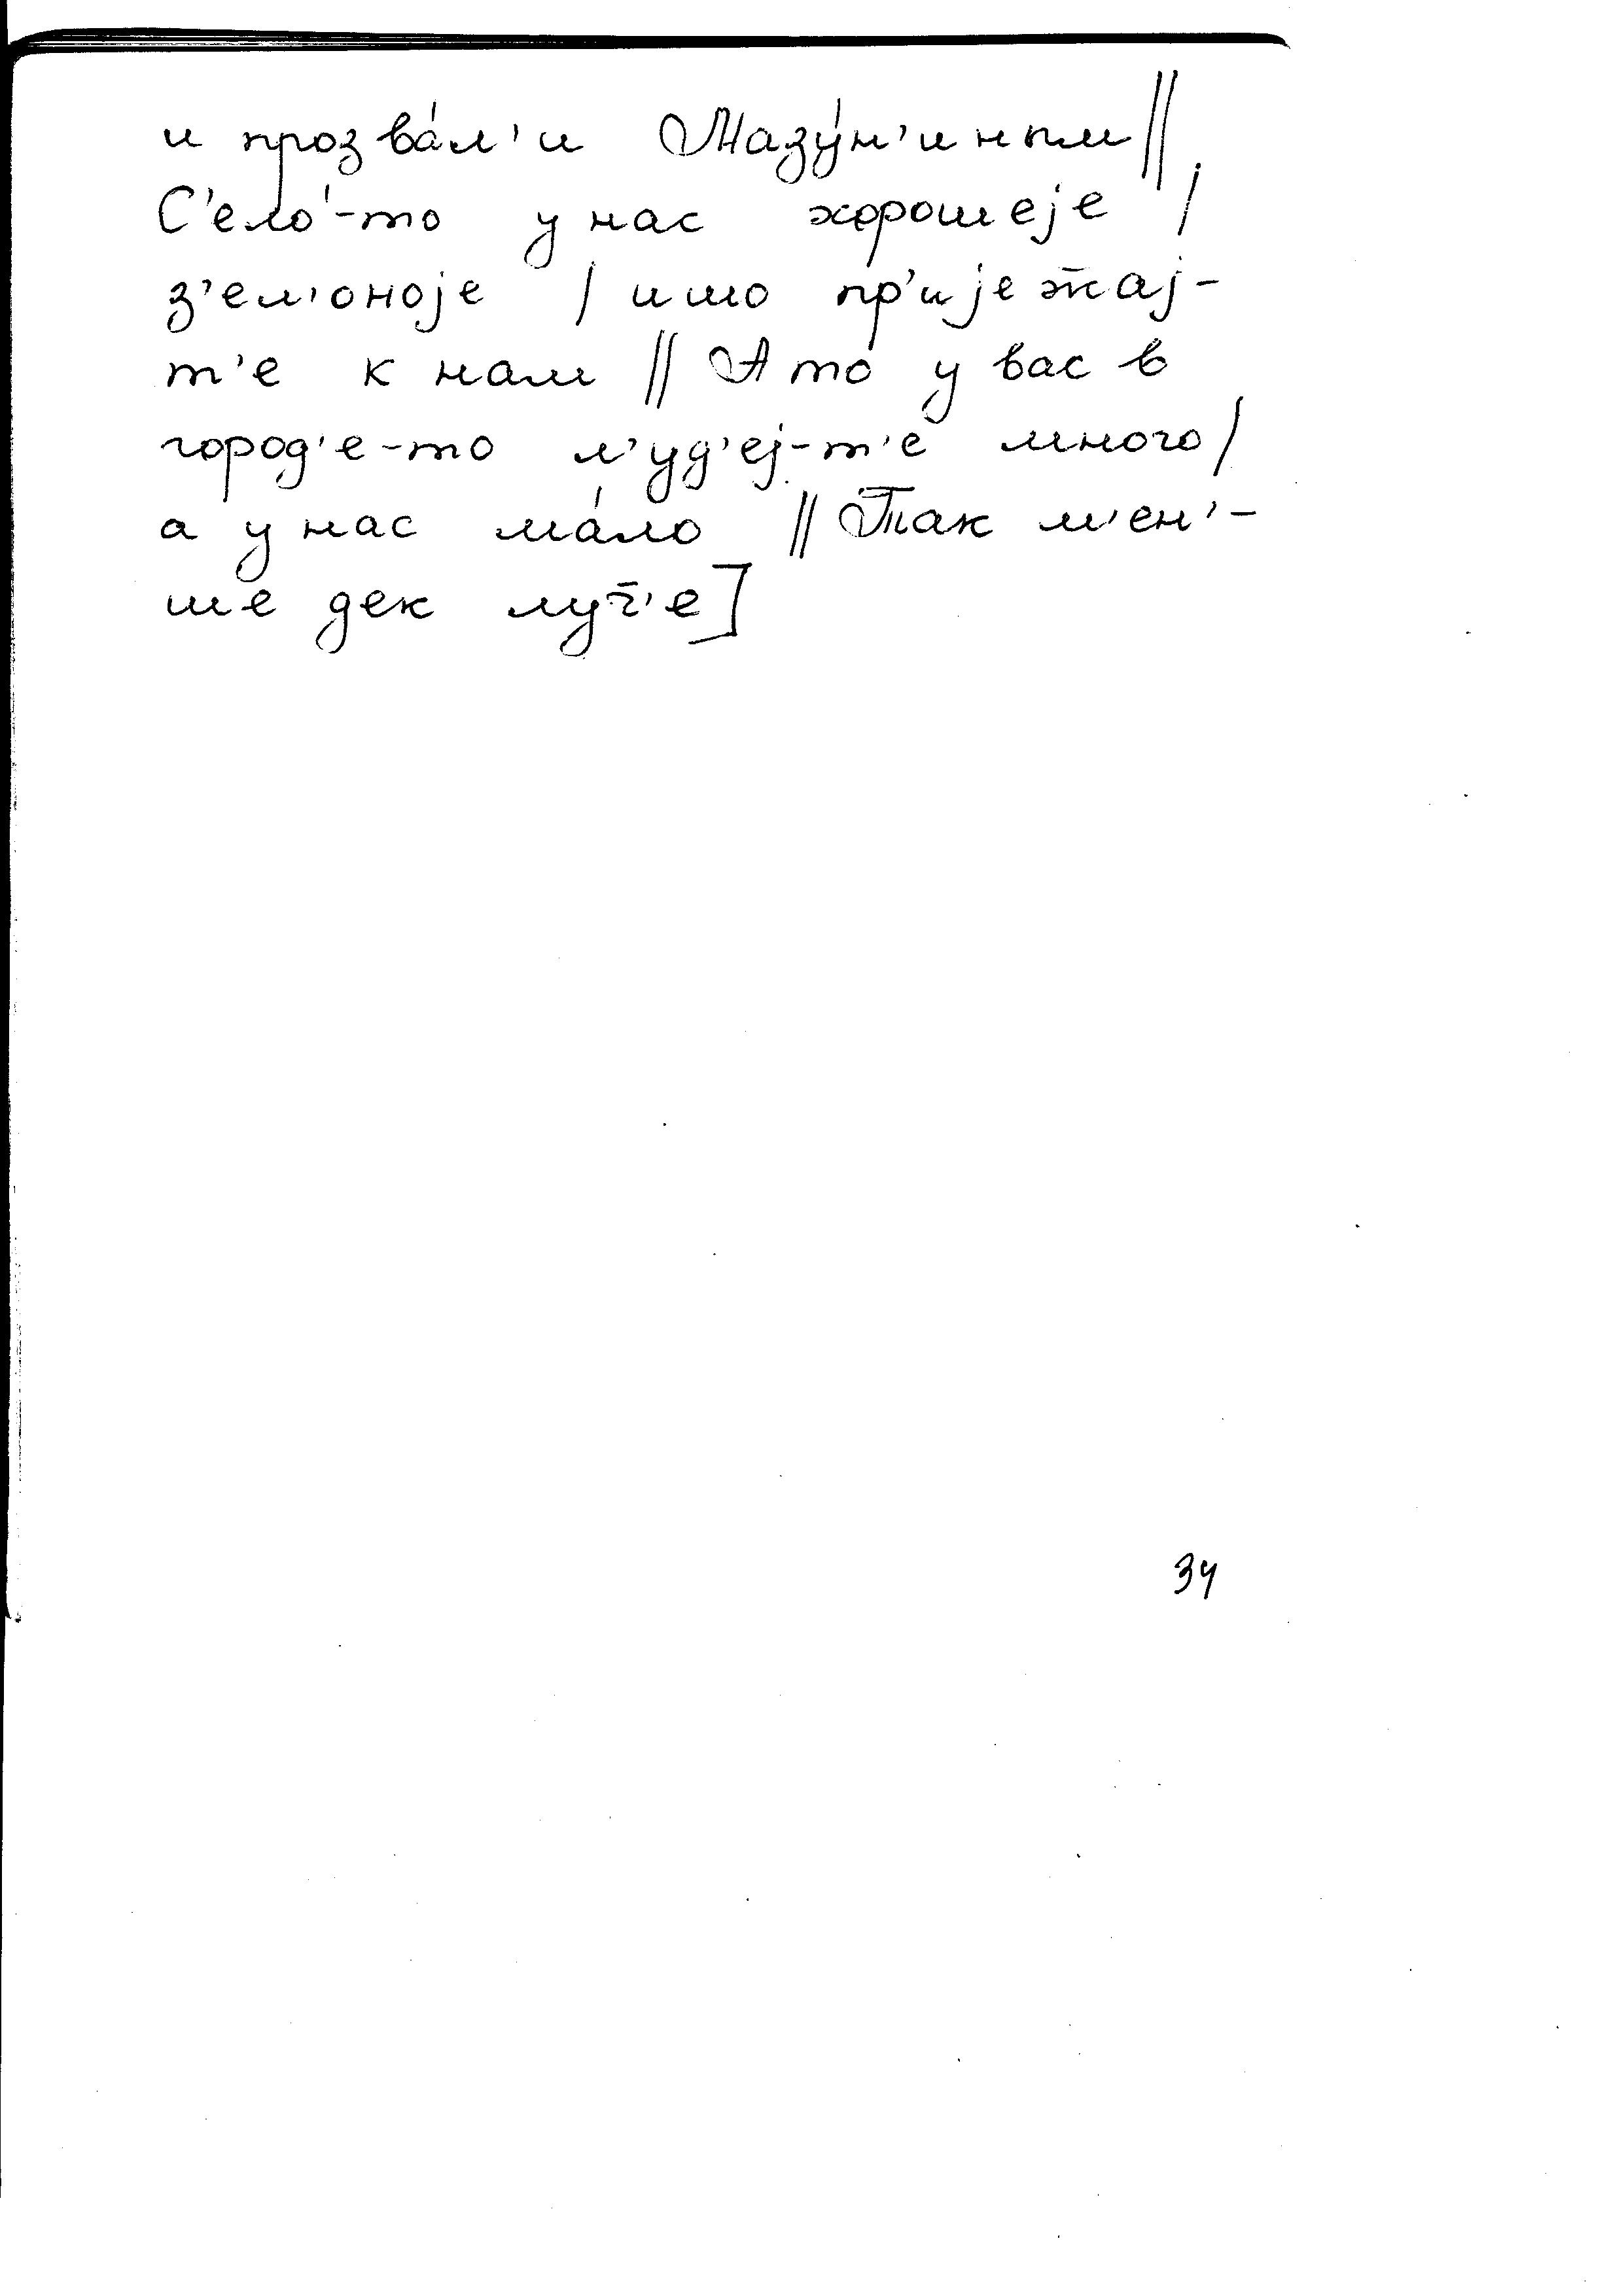 и прозва́л'и Мазу́н'иным ||
С'ело́-то у нас хорошеје /
з'ел'оноје / ишо пр'ијеж̅ај-
т'е к нам || А то у вас в
город'е-то л'уд'еј-т'е много /
а у нас ма́ло || Так м'ен'-
ше дек луч̅'е]
34